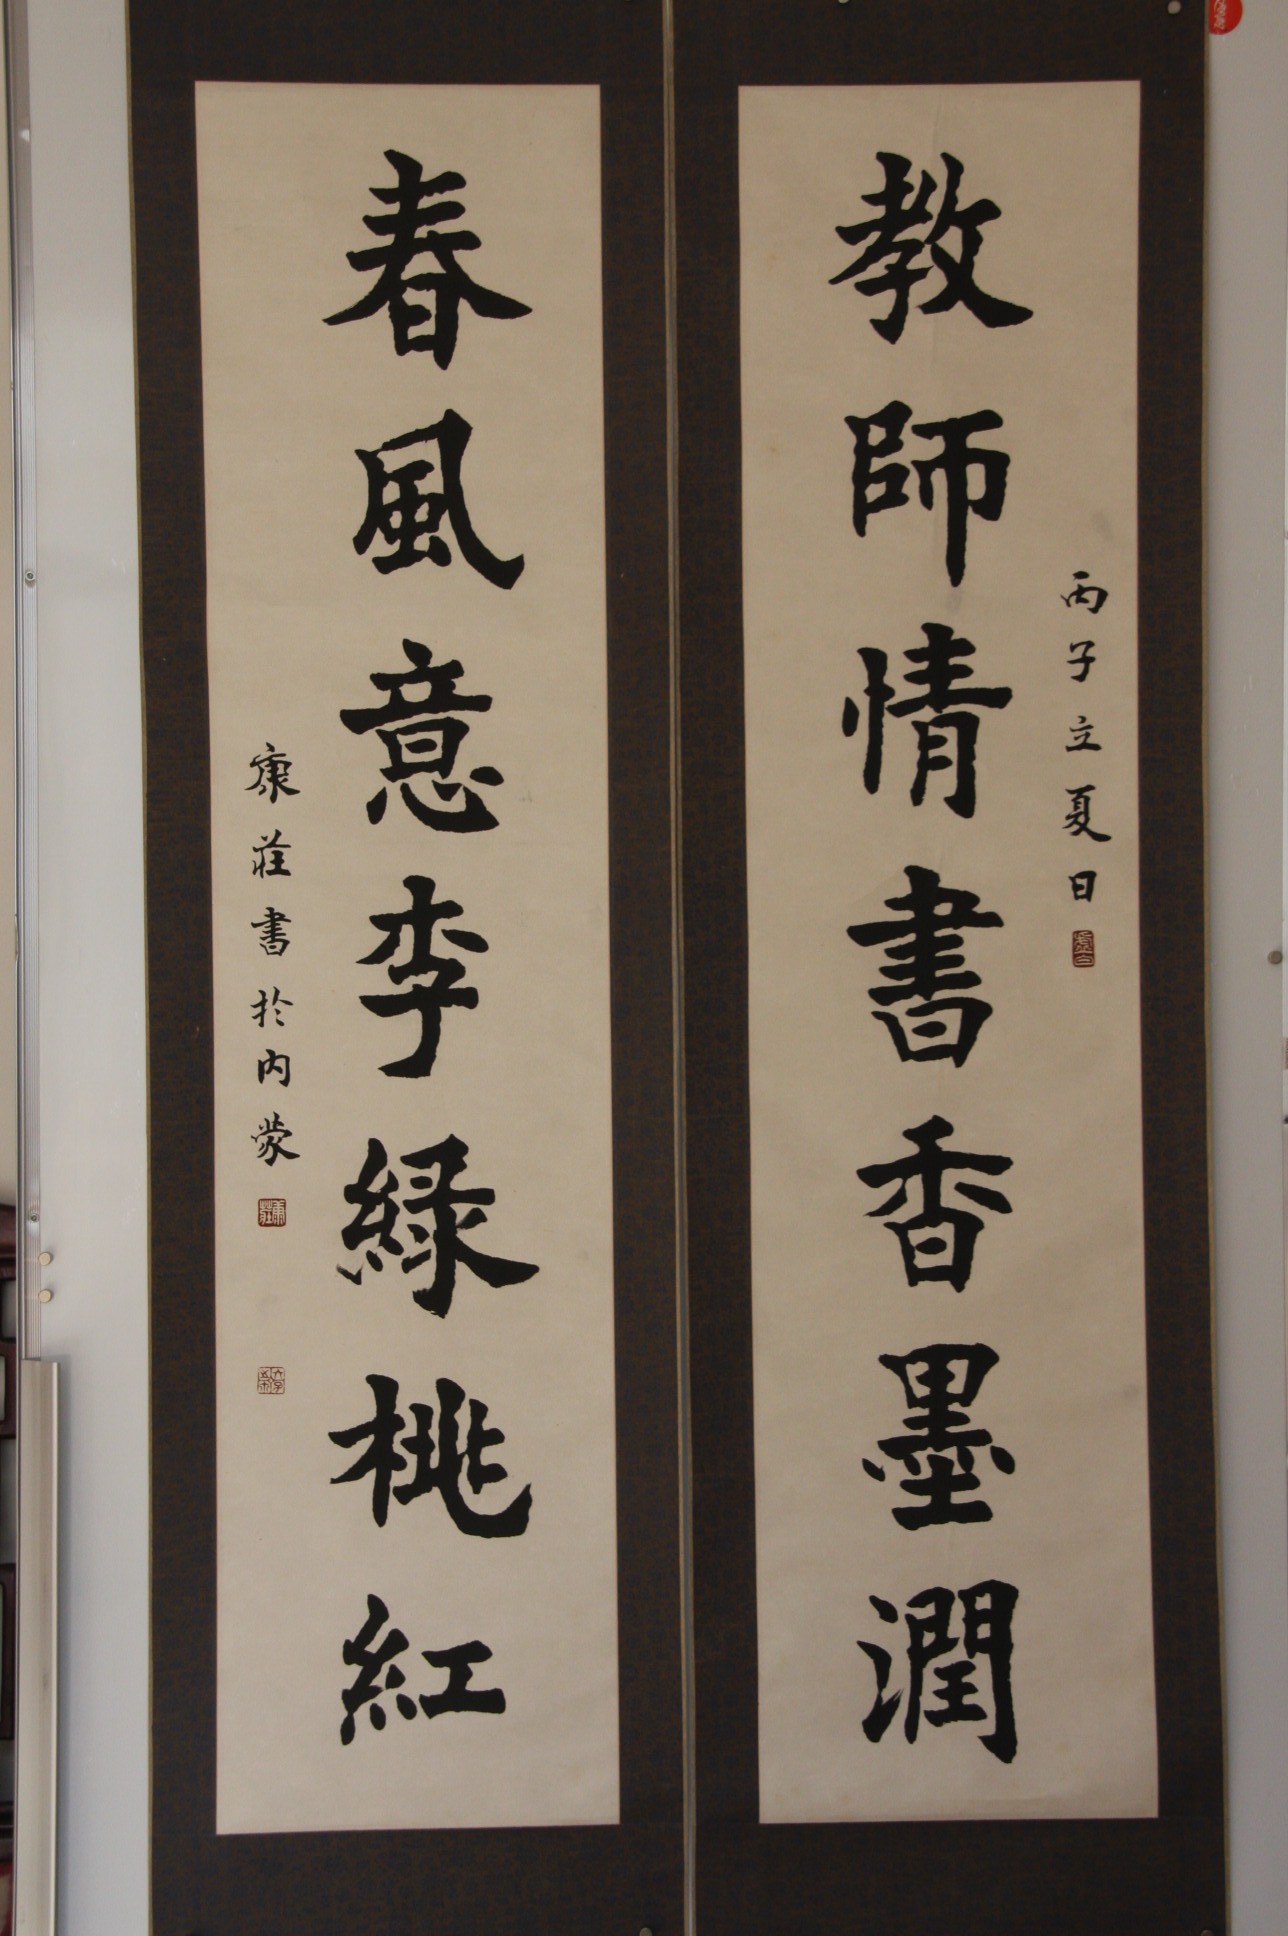 丙子立夏日
教師情書香墨潤
春風意李緑桃紅
康莊書於内蒙
康莊